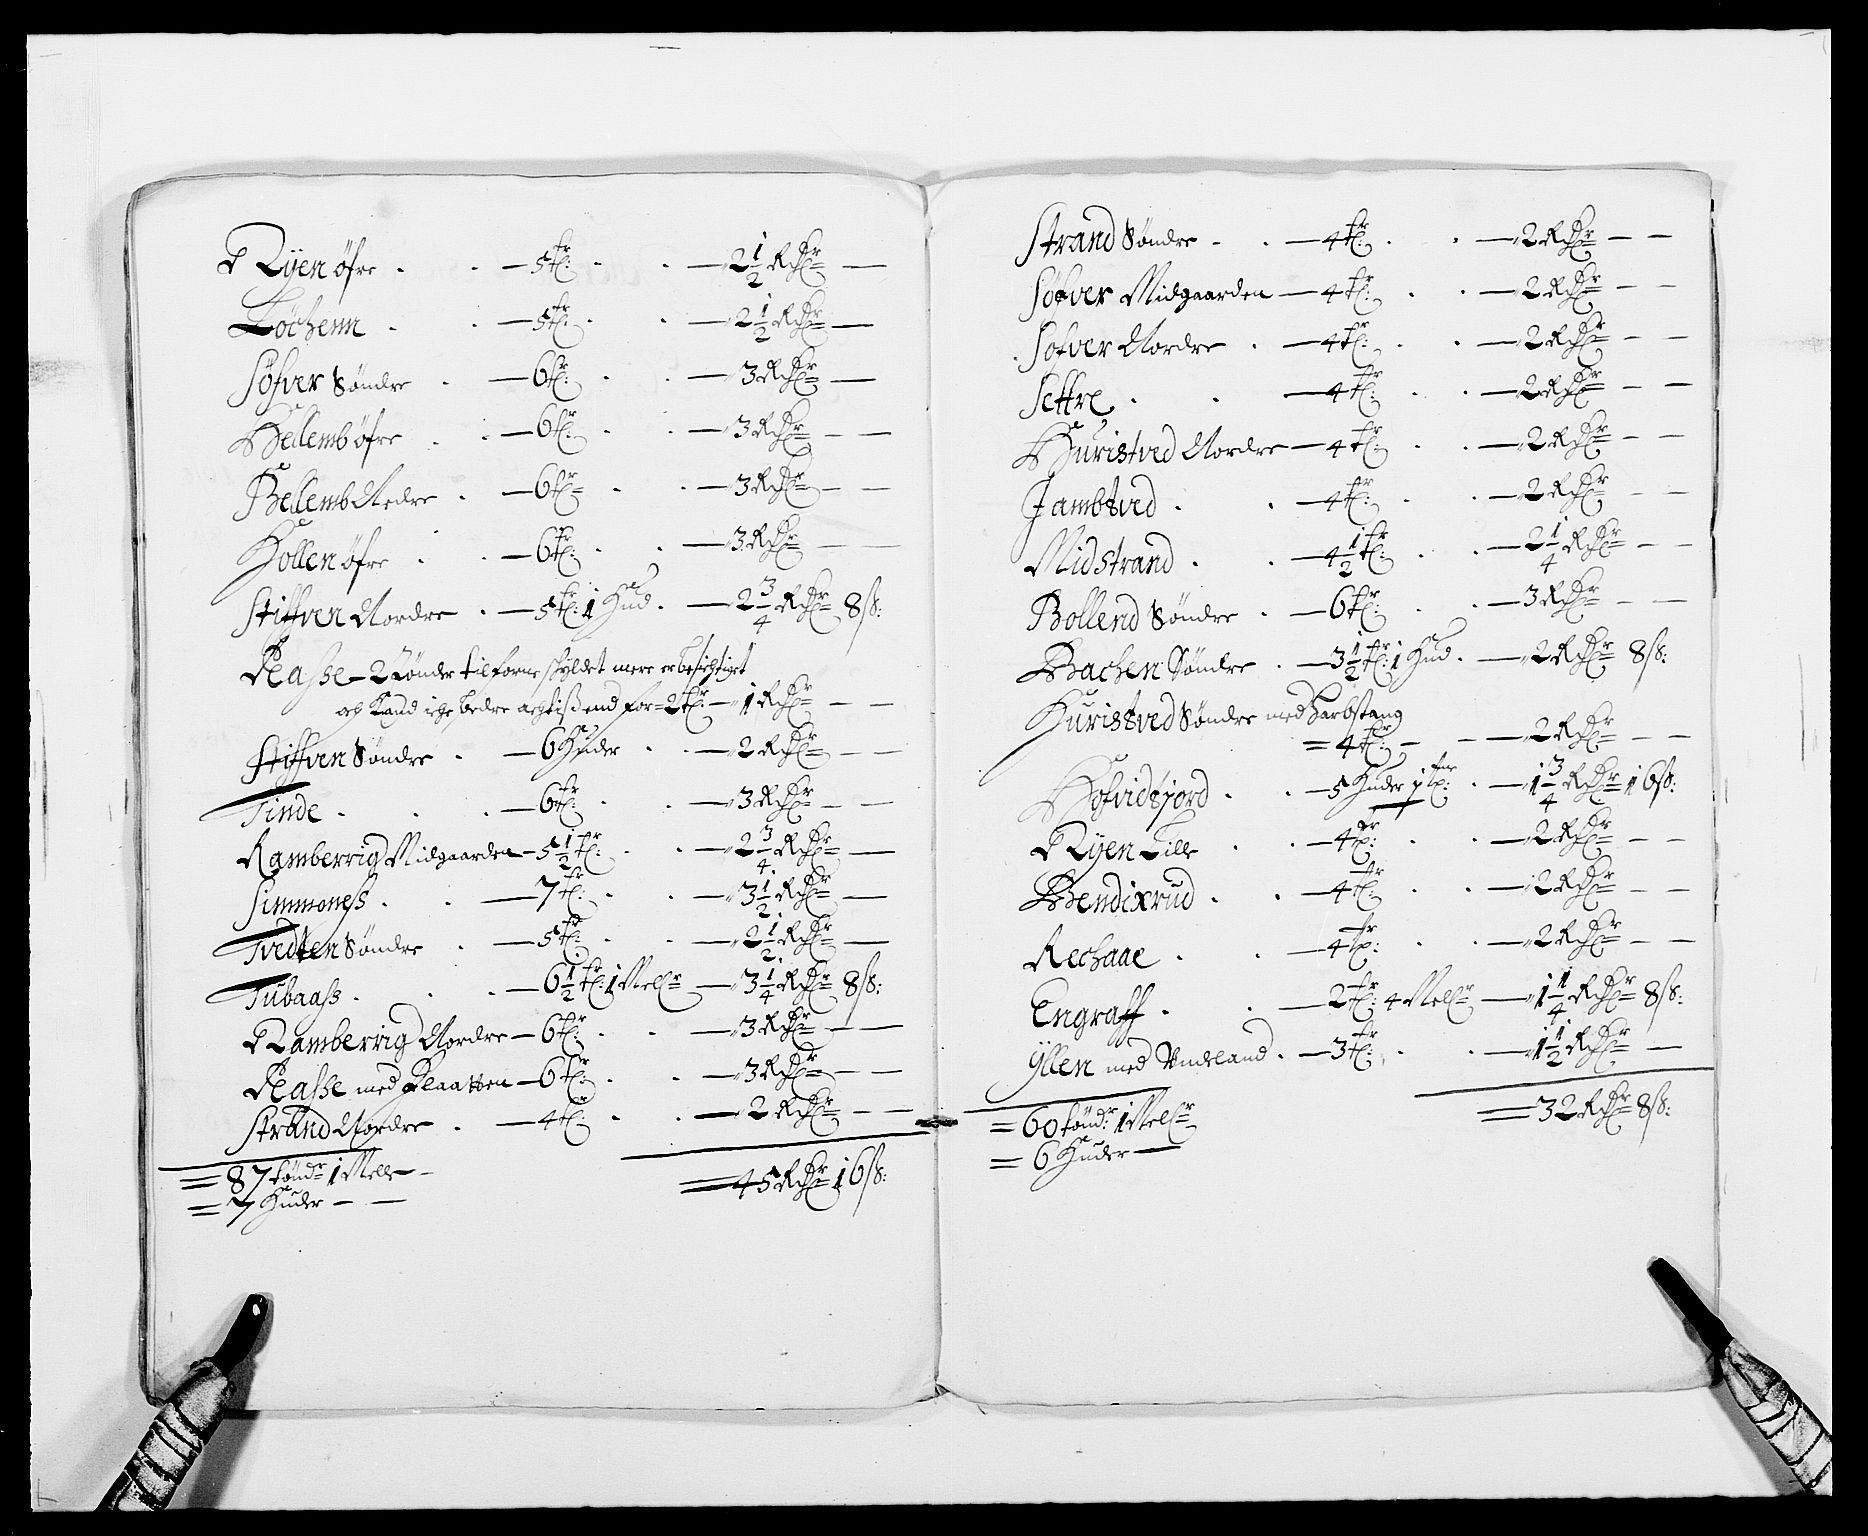 Ryen öfre . . — 5 tr: . . — 2 1/2 Rdr —
Löchenn . . — 5 tr: . . — 2 1/2 Rdr —
Söfver Söndre . — 6 tr: . . — 3 Rdr —
Hellemb öfre . . — 6 tr: . . — 3 Rdr — —
Hellemb Nedre . — 6 tr: . . — 3 Rdr — —
Hollen öfre . . — 6 tr: . . — 3 Rdr — —
Stiffven Nordre . — 5 tr: 1 Hud . — 2 3/4 Rdr 8 ß:
Klasse — 2 Tönder tilforne schyldet mere er besichtiget
och Kand iche bedre achtis end for = 2 tr: — 1 Rdr — —
Stiffven Söndre . — 6 Huder . . — 2 Rdr — —
Tinde . . . — 6 tr: . . — 3 Rdr — —
Ramberrig Midgaarden — 5 1/2 tr: . . — 2 3/4 Rdr —
Simmoness . . — 7 tr: . . — 3 1/2 Rdr —
Tvedten Söndre . — 5 tr: . . — 2 1/2 Rdr —
Tubaass . . . — 6 1/2 tr: 1 Mellr — 3 1/4 Rdr 8 ß:
Ramberrig Nordre — 6 tr: . . — 3 Rdr — —
Klasse med Plaatten — 6 tr: . . — 3 Rdr — —
Strand Nordre . — 4 tr: . . — 2 Rdr — —
= 87 töndr 1 Melle — —
= 7 Huder — —
= 45 Rdr 16 ß:
Strand Söndre . . — 4 tr: . . — 2 Rdr — —
Söfver Midgaarden — 4 tr: . . — 2 Rdr — —
Söfver Nordre . — 4 tr: . . — 2 Rdr — —
Settre . . — 4 tr: . . — 2 Rdr — —
Huristved Nordre — 4 tr: . . — 2 Rdr — —
Jambtved . . — 4 tr: . . — 2 Rdr — —
Midstrand . . — 4 1/2 tr: . . — 2 1/4 Rdr — —
Bollend Söndre . — 6 tr: . . — 3 Rdr — —
Bachen Söndre . — 3 1/2 tr: 1 Hud . — 2 Rdr 8 ß:
Huristved Söndre med Barbstang
= 4 tr: — — 2 Rdr — —
Hofvidsjord . . — 5 Huder 1 tr: . — 1 3/4 Rdr 16 ß:
Ryen Lille . . — 4 tr: . . — 2 Rdr — —
Bendixrud . . — 4 tr: . . — 2 Rdr — —
Rechaae . . — 4 tr: . . — 2 Rdr — —
Engraff . . — 2 tr: 4 Mellr — 1 1/4 Rdr 8 ß:
Yllen med Undeland . — 3 tr: . . — 1 1/2 Rdr —
= 60 töndr: 1 Mellr
= 6 Huder —
= 32 Rdr 8 ß: